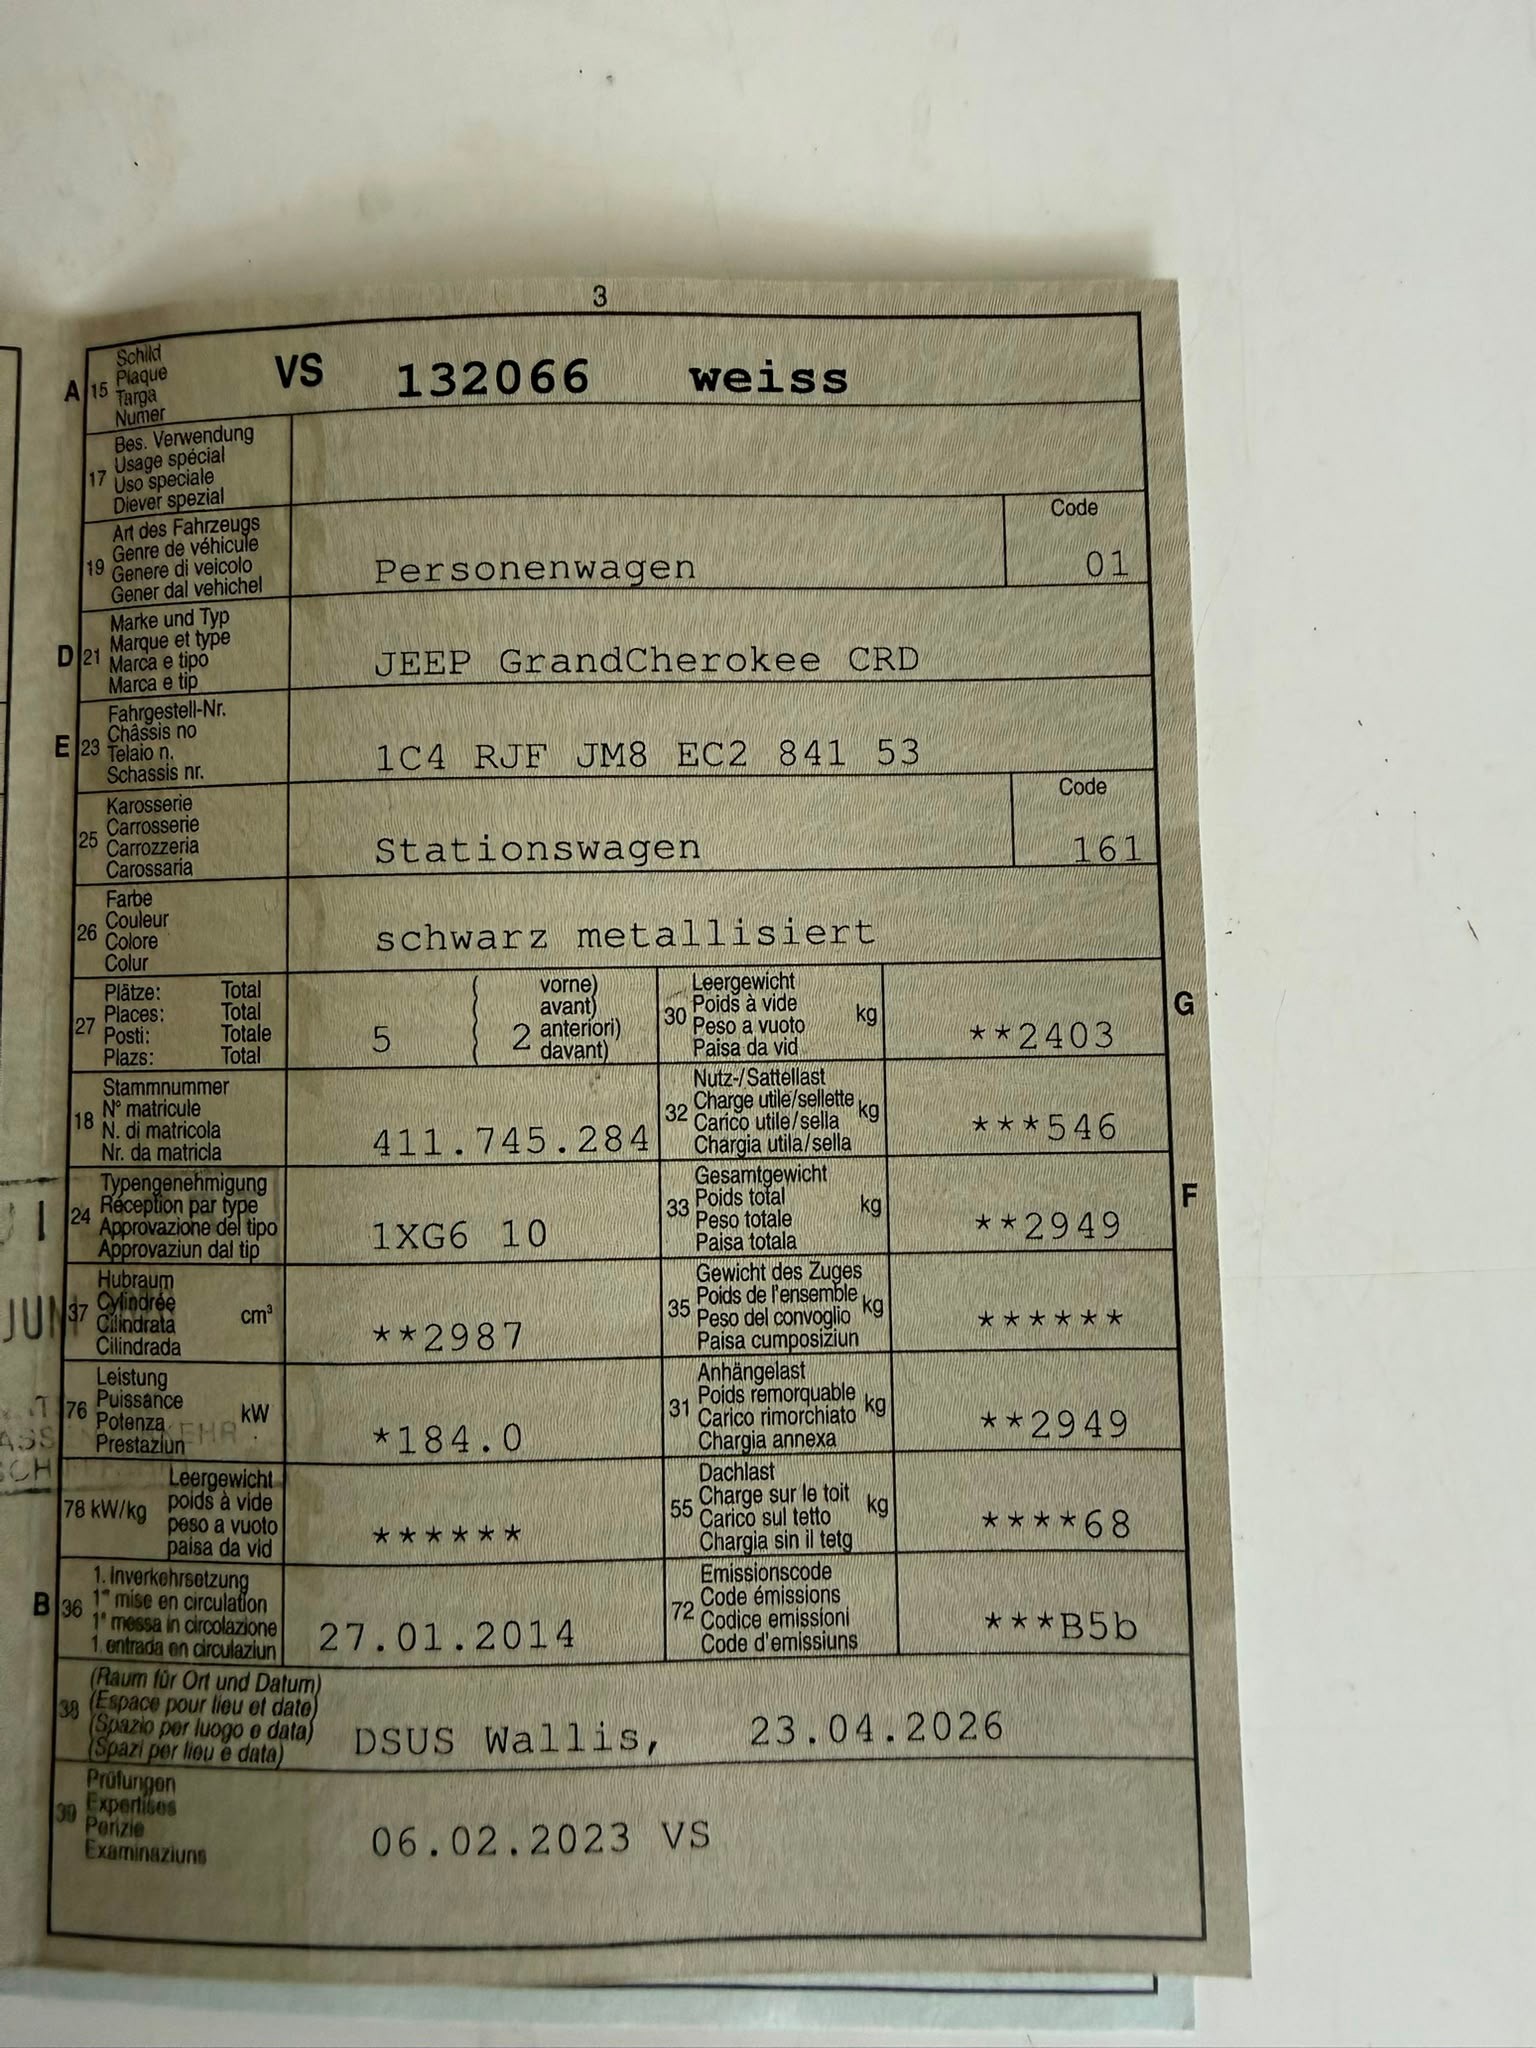 3
A 15 Schild
Plaque
Targa
Numer
VS 132066 weiss
17 Bes. Verwendung
Usage spécial
Uso speciale
Diever spezial
19 Art des Fahrzeugs
Genre de véhicule
Genere di veicolo
Gener dal vehichel
Personenwagen
Code
01
D 21 Marke und Typ
Marque et type
Marca e tipo
Marca e tip
JEEP GrandCherokee CRD
E 23 Fahrgestell-Nr.
Châssis no
Telaio n.
Schassis nr.
1C4 RJF JM8 EC2 841 53
25 Karosserie
Carrosserie
Carrozzeria
Carossaria
Stationswagen
Code
161
26 Farbe
Couleur
Colore
Colur
schwarz metallisiert
27 Plätze: Total
Places: Total
Posti: Totale
Plazs: Total
5
2
vorne)
avant)
anteriori)
davant)
30 Leergewicht
Poids à vide
Peso a vuoto
Paisa da vid
kg
**2403
G
18 Stammnummer
N° matricule
N. di matricola
Nr. da matricla
411.745.284
32 Nutz-/Sattellast
Charge utile/sellette
Carico utile/sella
Chargia utila/sella
kg
***546
24 Typengenehmigung
Réception par type
Approvazione del tipo
Approvaziun dal tip
1XG6 10
33 Gesamtgewicht
Poids total
Peso totale
Paisa totala
kg
**2949
F
37 Hubraum
Cylindrée
Cilindrata
Cilindrada
cm³
**2987
35 Gewicht des Zuges
Poids de l'ensemble
Peso del convoglio
Paisa cumposiziun
kg
******
JUN
76 Leistung
Puissance
Potenza
Prestaziun
kW
*184.0
31 Anhängelast
Poids remorquable
Carico rimorchiato
Chargia annexa
kg
**2949
78 kW/kg
Leergewicht
poids à vide
peso a vuoto
paisa da vid
******
55 Dachlast
Charge sur le toit
Carico sul tetto
Chargia sin il tetg
kg
****68
B 36 1. Inverkehrsetzung
1re mise en circulation
1a messa in circolazione
1. entrada en circulaziun
27.01.2014
72 Emissionscode
Code émissions
Codice emissioni
Code d'emissiuns
***B5b
38 (Raum für Ort und Datum)
(Espace pour lieu et date)
(Spazio per luogo e data)
(Spazi per lieu e data)
DSUS Wallis, 23.04.2026
39 Prüfungen
Expertises
Perizie
Examinaziuns
06.02.2023 VS